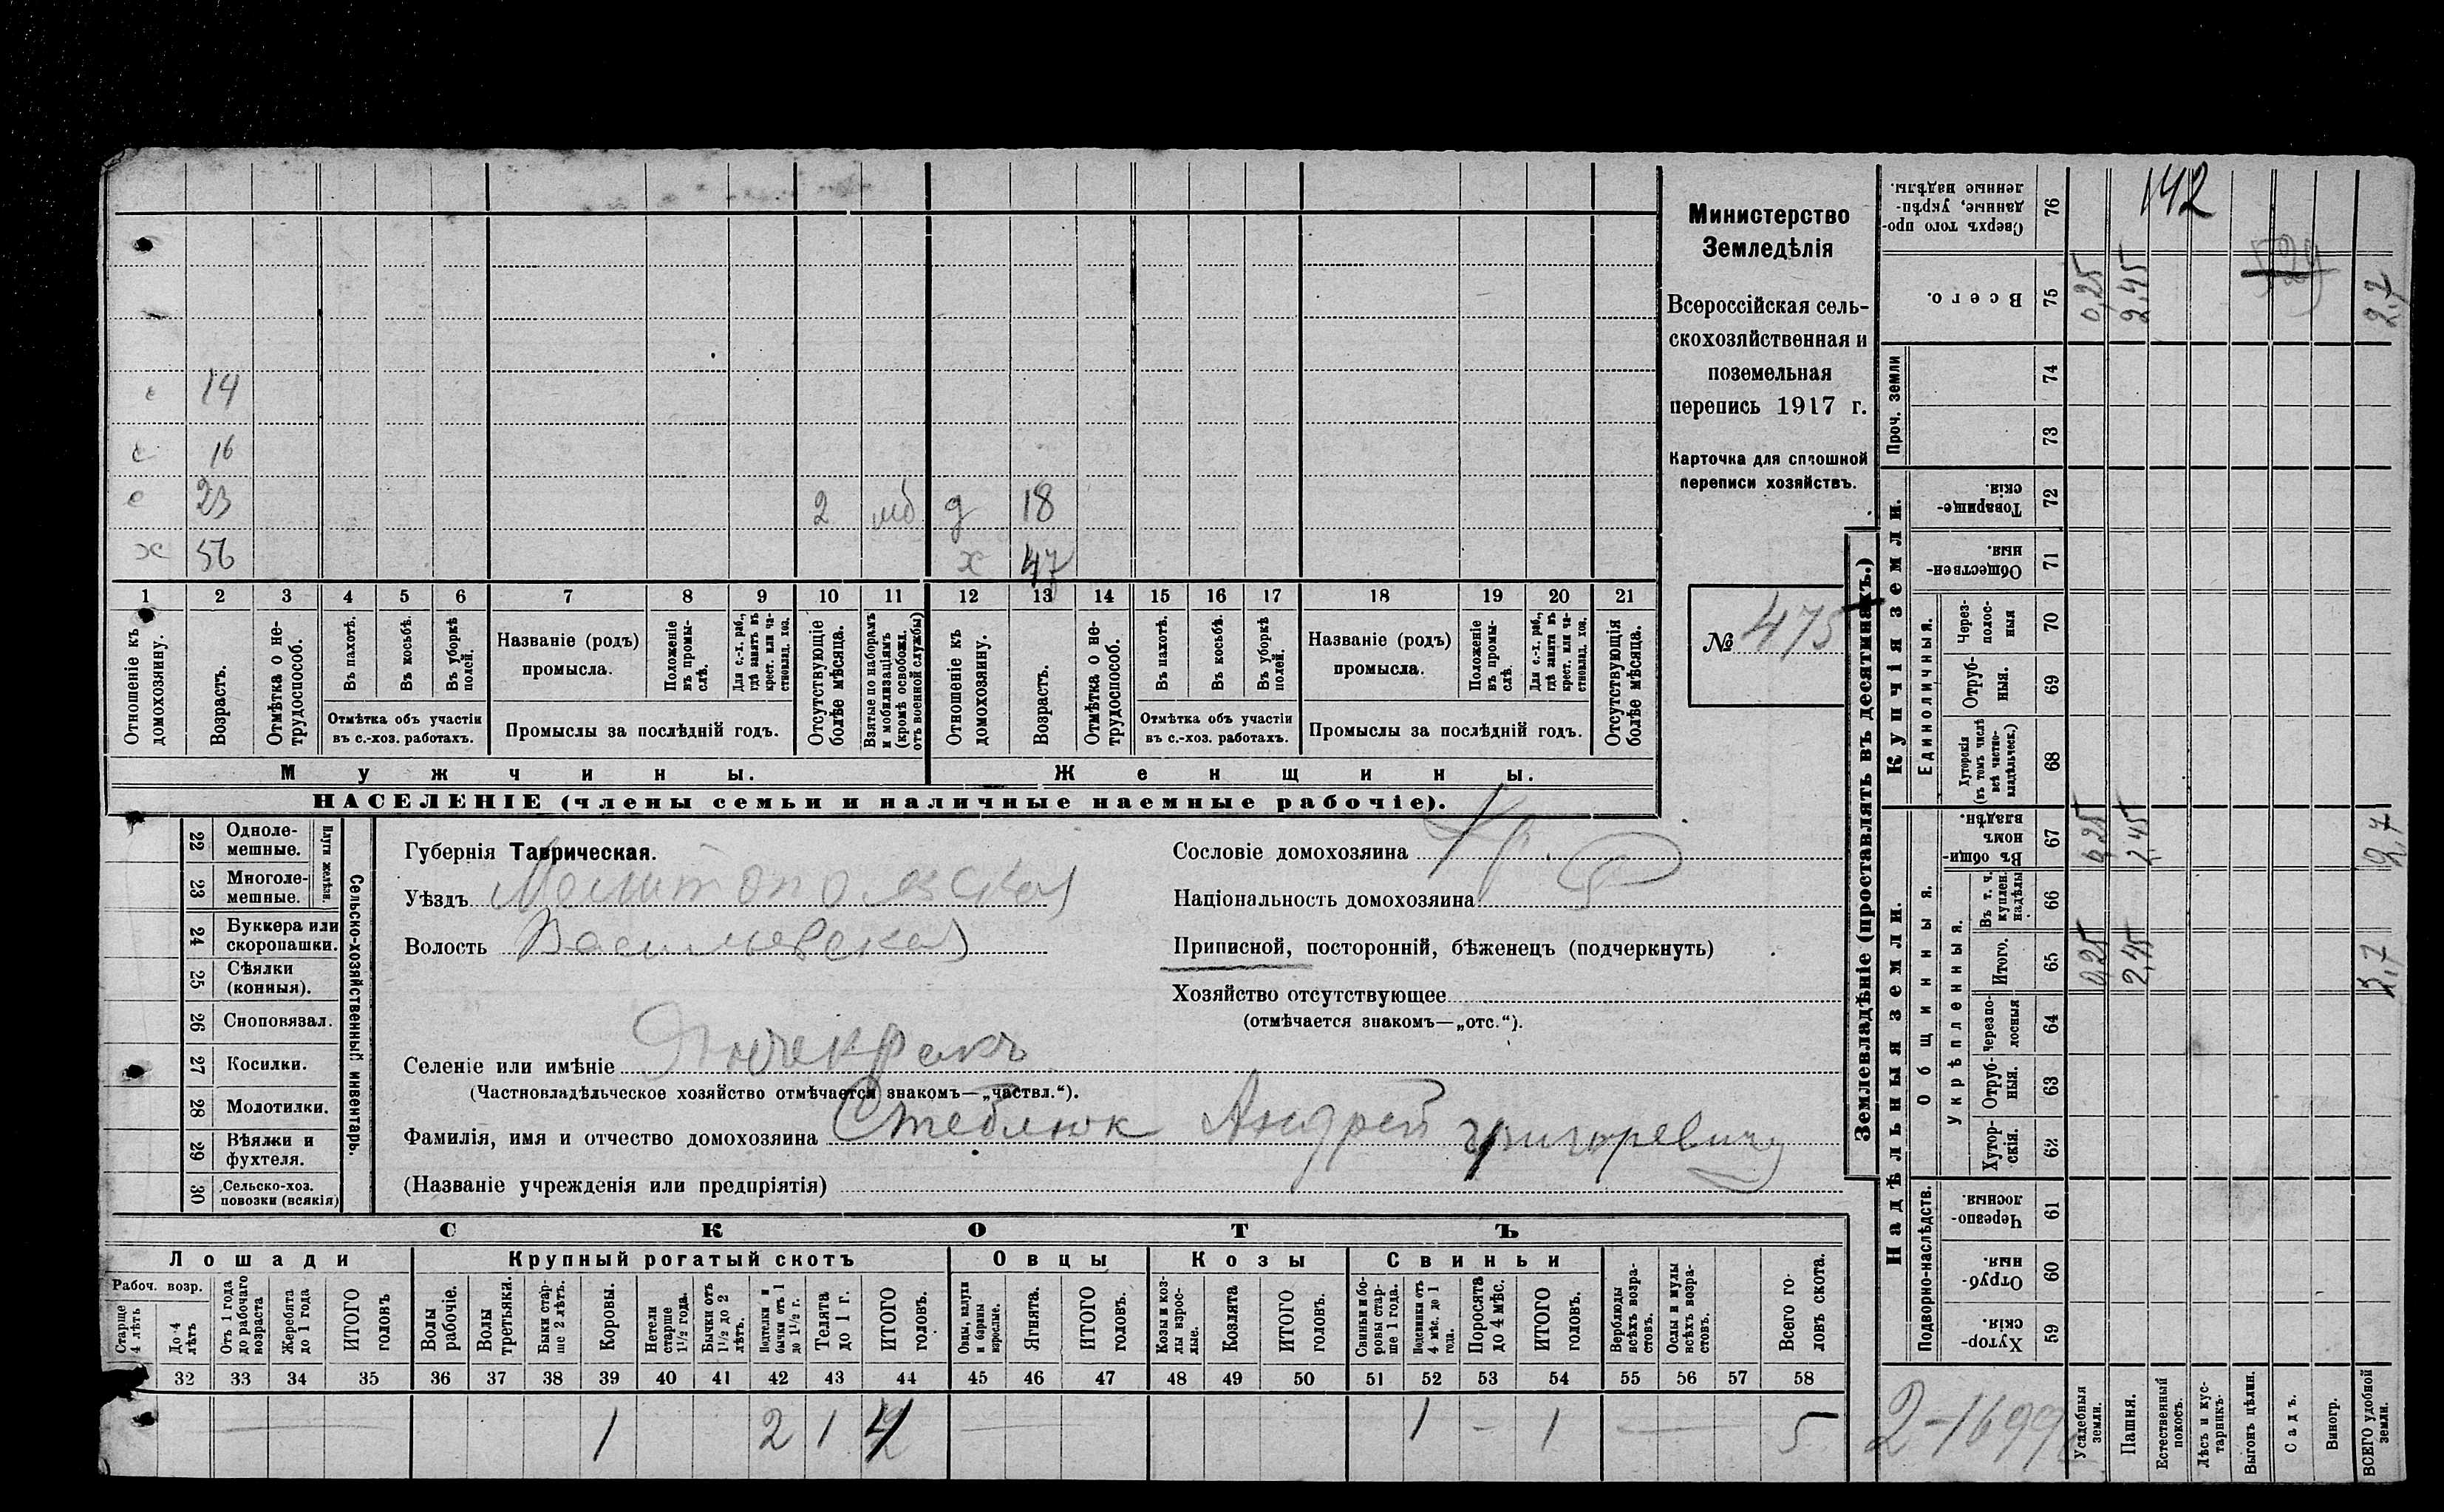 142
529
14
16
с 23 2 моб д 18
х 56 х 47
1 2 3 4 5 6 7 8 9 10 11 12 13 14 15 16 17 18 19 20 21
Отношеніе къ домохозяину.
Возрастъ.
Отмѣтка о не-трудоспособ.
Въ пахотѣ.
Въ косьбѣ.
Въ уборкѣ полей.
Отмѣтка объ участіи
въ с.-хоз. работахъ.
Названіе (родъ)
промысла.
Положеніе въ промы-слѣ.
Для с.-х. раб., гдѣ занятъ въ крест. или ча-стновлад. хоз.
Промыслы за послѣдній годъ.
Отсутствующіе болѣе мѣсяца.
Взятые по наборамъ и мобилизаціямъ (кромѣ освобожд. отъ военной службы)
Отношеніе къ домохозяину.
Возрастъ.
Отмѣтка о не-трудоспособ.
Въ пахотѣ.
Въ косьбѣ.
Въ уборкѣ полей.
Отмѣтка объ участіи
въ с.-хоз. работахъ.
Названіе (родъ)
промысла.
Положеніе въ промы-слѣ.
Для с.-х. раб., гдѣ занятъ въ крест. или ча-стновлад. хоз.
Промыслы за послѣдній годъ.
Отсутствующія болѣе мѣсяца.
Мужчины. Женщины.
НАСЕЛЕНІЕ (члены семьи и наличные наемные рабочіе).
Министерство
Земледѣлія
Всероссійская сель-
скохозяйственная и
поземельная
перепись 1917 г.
Карточка для сплошной
переписи хозяйствъ.
№ 475
22 Одноле-мешные.
23 Многоле-мешные.
Плуги желѣзн.
24 Буккера или скоропашки.
25 Сѣялки (конныя).
26 Сноповязал.
27 Косилки.
28 Молотилки.
29 Вѣялки и фухтеля.
30 Сельско-хоз. повозки (всякія)
Сельско-хозяйственный инвентарь.
Губернія Таврическая.
Уѣздъ Мелитопольскій
Волость Васильевская
Сословіе домохозяина Кр.
Національность домохозяина Р
Приписной, посторонній, бѣженецъ (подчеркнуть)
Хозяйство отсутствующее
(отмѣчается знакомъ—„отс.“).
Селеніе или имѣніе Янчекракъ
(Частновладѣльческое хозяйство отмѣчается знакомъ—„частвл.“).
Фамилія, имя и отчество домохозяина Стеблюк Андрей Григоревичъ
(Названіе учрежденія или предпріятія)
СКОТЪ
Лошади Крупный рогатый скотъ Овцы Козы Свиньи
Рабоч. возр.
Старше 4 лѣтъ
До 4 лѣтъ
Отъ 1 года до рабочаго возраста
Жеребята до 1 года
ИТОГО головъ
Волы рабочіе.
Волы третьяки.
Быки стар-ше 2 лѣтъ.
Коровы.
Нетели старше 1½ года.
Бычки отъ 1½ до 2 лѣтъ.
Подтелки и бычки отъ 1 до 1½ г.
Телята до 1 г.
ИТОГО головъ.
Овцы, валухи и бараны взрослые.
Ягнята.
ИТОГО головъ.
Козы и коз-лы взрос-лые.
Козлята
ИТОГО головъ.
Свиньи и бо-ровы стар-ше 1 года.
Подсвинки отъ 4 мѣс. до 1 года.
Поросята до 4 мѣс.
ИТОГО головъ.
Верблюды всѣхъ возра-стовъ.
Ослы и мулы всѣхъ возра-стовъ.
Всего го-ловъ скота.
32 33 34 35 36 37 38 39 40 41 42 43 44 45 46 47 48 49 50 51 52 53 54 55 56 57 58
1 2 1 4 1 - 1 5
Землевладѣніе (проставлять въ десятинахъ.)
Сверхъ того про-данные, укрѣп-ленные надѣлы. 76
Всего. 75 0,25 2,45 2,7
Проч. земли
74
73
Купчія земли.
Товарище-скія. 72
Обществен-ныя. 71
Единоличныя.
Через-полос-ныя 70
Отруб-ныя. 69
Хуторскія (въ томъ числѣ всѣ частно-владѣльческ.) 68
Надѣльныя земли.
Общинныя.
Въ общи-номъ владѣн. 67 0,25 2,45 2,7
Укрѣпленныя.
Въ т. ч. куплен. надѣлы 66
Итого. 65 0,25 2,45 2,7
Черезпо-лосныя 64
Отруб-ныя. 63
Хутор-скія. 62
Подворно-наслѣдств.
Черезпо-лосныя. 61
Отруб-ныя. 60
Хутор-скія. 59
2-1699
Усадебныя земли.
Пашня.
Естественный покосъ.
Лѣсъ и кус-тарникъ.
Выгонъ цѣлин.
Садъ.
Виногр.
ВСЕГО удобной земли.